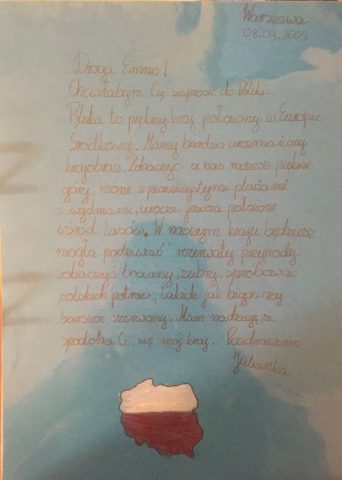 Warszawa
08.09.2005
Droga Emmo!
Chciałabym Cię zaprosić do Polski.
Polska to piękny kraj położony w Europie
Środkowej. Mamy bardzo urozmaicony
krajobraz. Zobaczyć u nas możesz piękne
góry, morze z przepięknymi plażami
i wydmami, urocze jeziora położone
wśród lasów. W naszym kraju będziesz
mogła podziwiać rezerwaty przyrody,
zobaczyć bociany, żubry, spróbować
polskich potraw, takich jak bigos czy
barszcz czerwony. Mam nadzieję, że
spodoba Ci się mój kraj. Pozdrawiam
Julianka